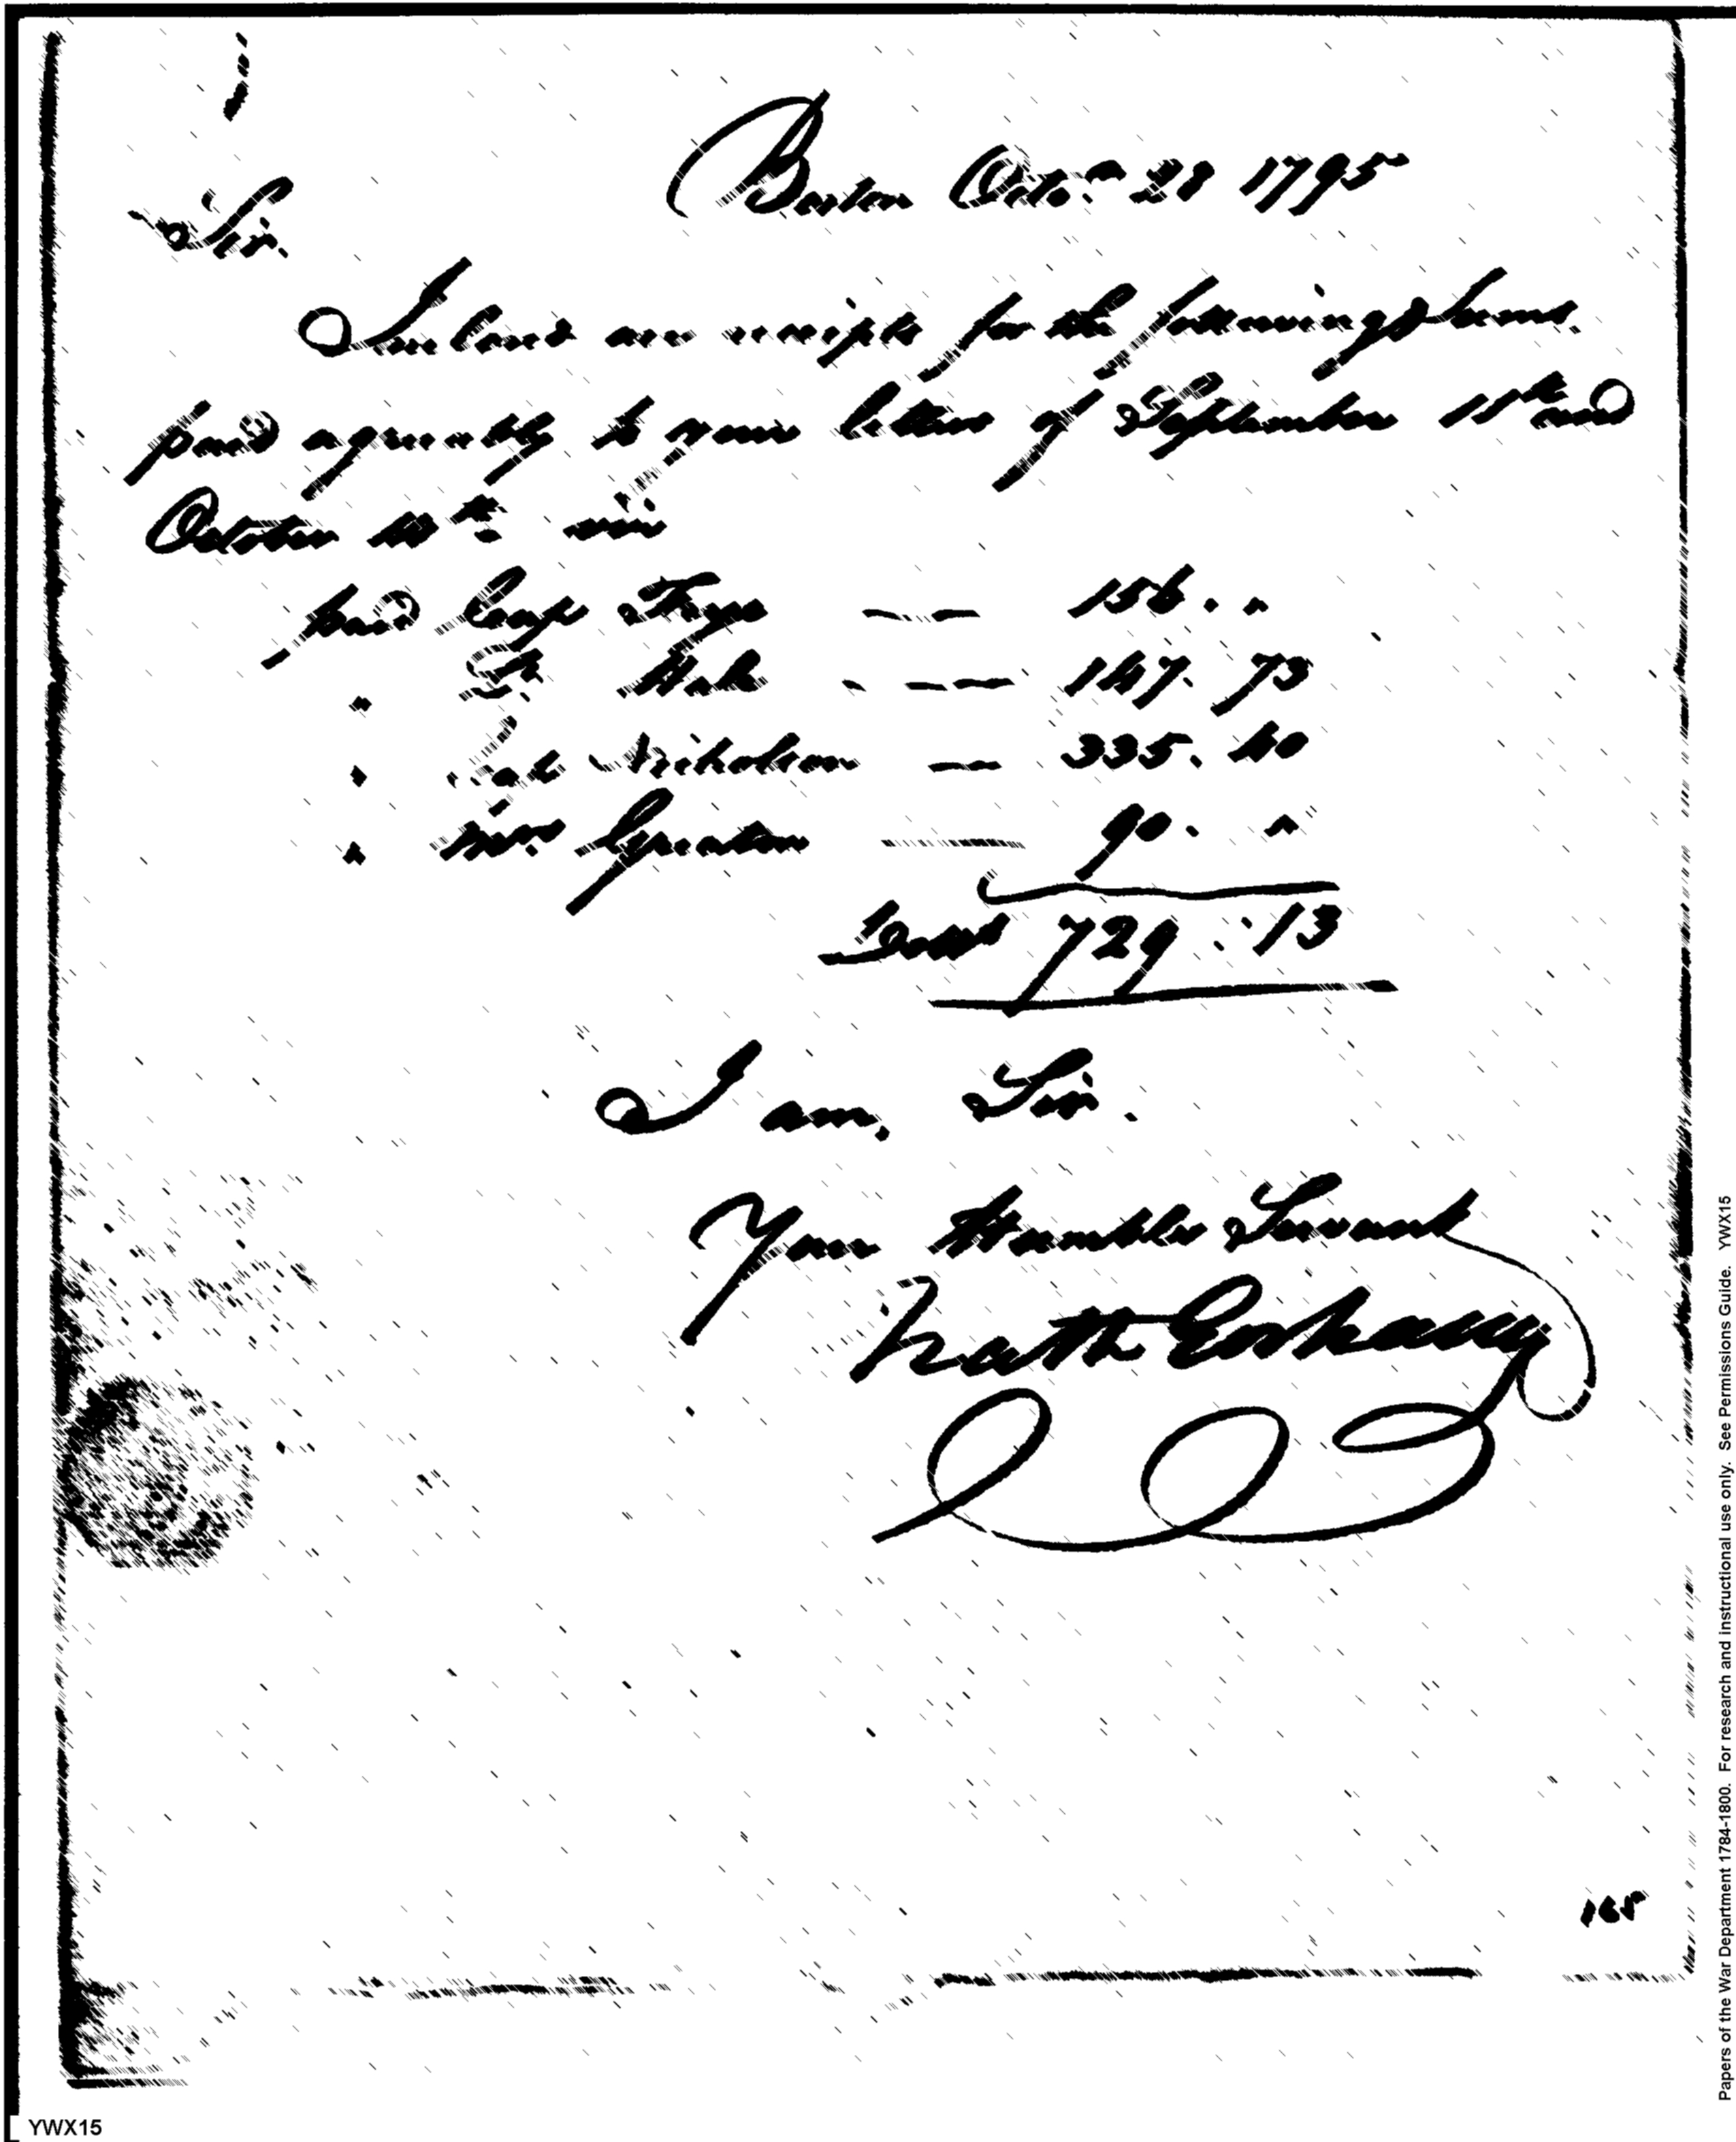 Boston Octo.r 28 1795
Sir.
Inclosed are receipts for the following Sums.
paid agreeably to your letters of September 11th and
October 10th. viz
paid Capt Frye —— 156. "
" Dr. Hale . —— 147. 73
" Nicholson — 335. 40
" Mrs. Greaton —— 90. "
Dolls 729 . 13
I am, Sir.
Your Humble Servant
Nath Exkaury
165
YWX15
Papers of the War Department 1784-1800. For research and instructional use only. See Permissions Guide. YWX15